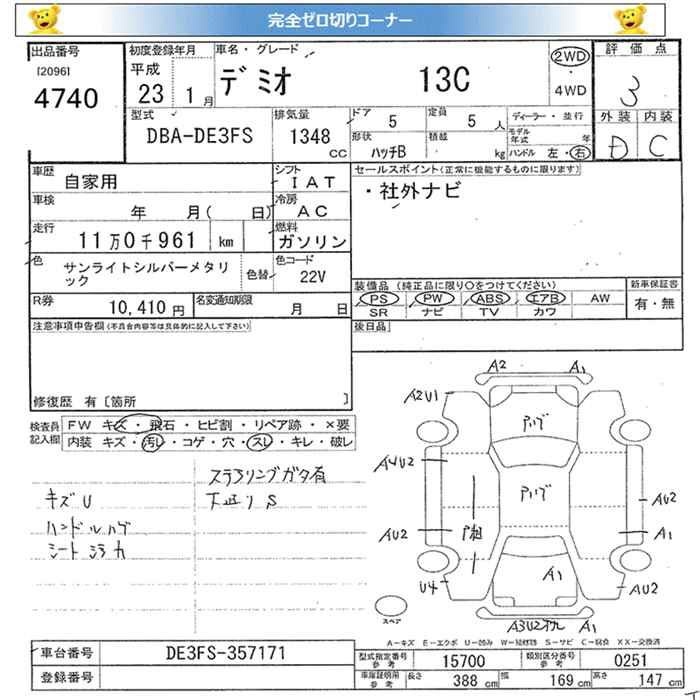 完全ゼロ切りコーナー
出品番号
[2096]
4740
初度登録年月
平成
23 1月
車名・グレード
デミオ 13C
2WD
・
4WD
評価点
3
外装 内装
D C
型式
DBA-DE3FS
排気量
1348
CC
ドア
5
定員
5人
形状
ハッチB
積載
kg
ディーラー・並行
モデル年式
年
ハンドル 左・右
車歴
自家用
シフト
IAT
車検
年 月( 日)
冷房
AC
走行
11万0千961 km
燃料
ガソリン
色
サンライトシルバーメタリ
ック
色替
色コード
22V
R券
10,410円
名変通知期限
月 日
セールスポイント(正常に機能するものに限ります)
・社外ナビ
装備品(純正品に限り○をつけてください)
PS PW ABS エアB AW
SR ナビ TV カワ
新車保証書
有・無
後日品
注意事項申告欄(不具合内容等は具体的に記入して下さい)
修復歴 有〔箇所 〕
検査員
記入欄
FW キズ・飛石・ヒビ割・リペア跡・×要
内装 キズ・汚レ・コゲ・穴・スレ・キレ・破レ
キズU
ハンドルハゲ
ステアリングガタ有
下廻りS
A2
A1
A2U1
A4U2
AU2
U4
AU2
A1
AU2
A1
A1
スペア
A-キズ E-エクボ U-凹み W-補修跡 S-サビ C-腐食 XX-交換済
車台番号
DE3FS-357171
登録番号
型式指定番号
参考
15700
類別区分番号
参考
0251
車庫証明用
参考
長さ
388 cm
幅
169 cm
高さ
147 cm